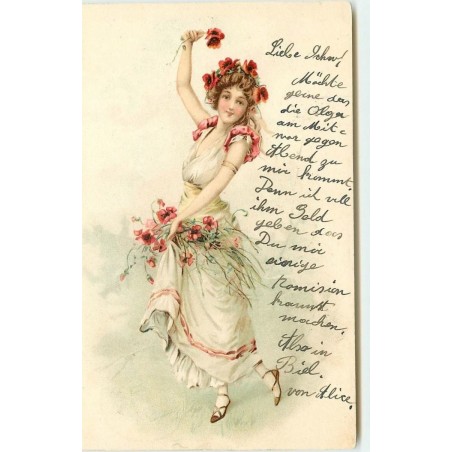 Liebe Ichn!
Möchte
gerne das
die Olga
am Mit-
wor gegen
Abend zu
mir kommt.
Denn ich will
ihm Geld
geben das
Du mir
einige
Komision
kannst
machen.
Also in
Biel.
von Alice.